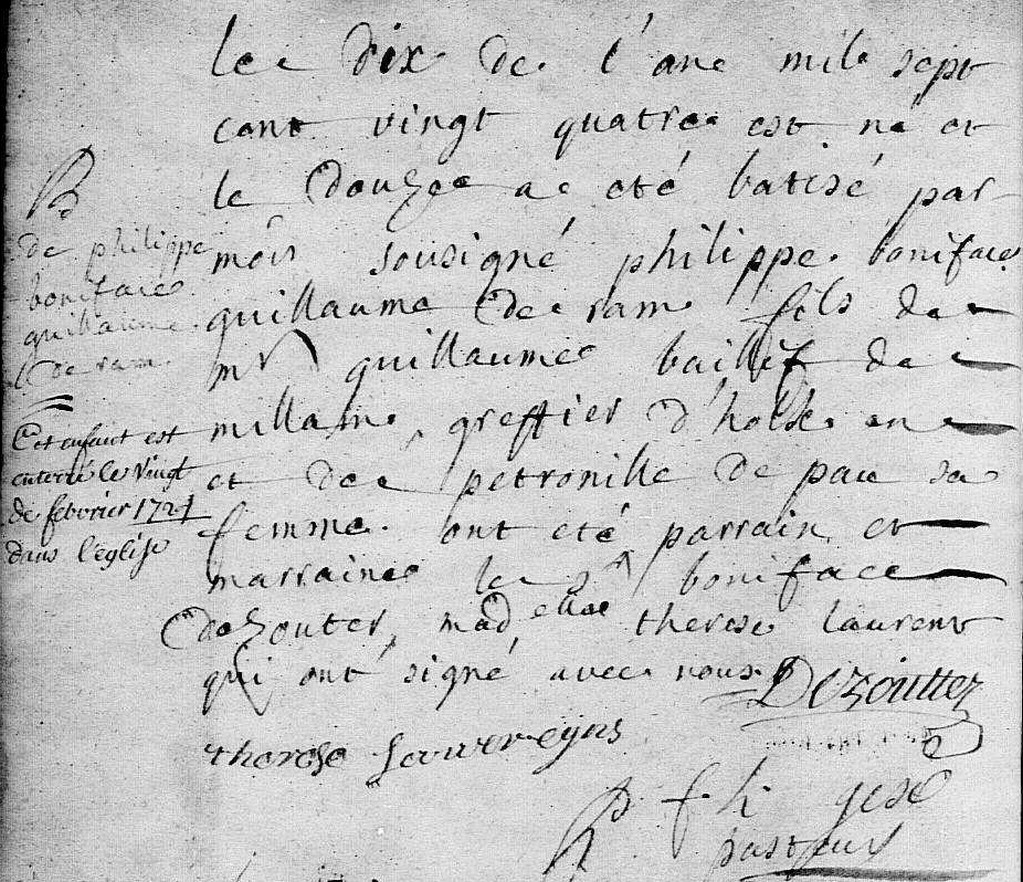 le dix de l'ane mil sept
cent vingt quatre est né et
le douze a eté batisé par
moÿ sousigné philippe boniface
guillaume de ram fils de
mr guillaume baillif de
millam, greffier d'holke en
et de petronille de pau sa
femme. ont eté parrain et
marraine le sr boniface
dezouter, mad elle therese laurens
qui ont signé avec nous.
Dezoutter
therese Lauwereyns
pasteur
B
de philippe
boniface
guillaume
de ram
Cet enfant est
enterré le vingt
de febvrier 1724
dans l'église